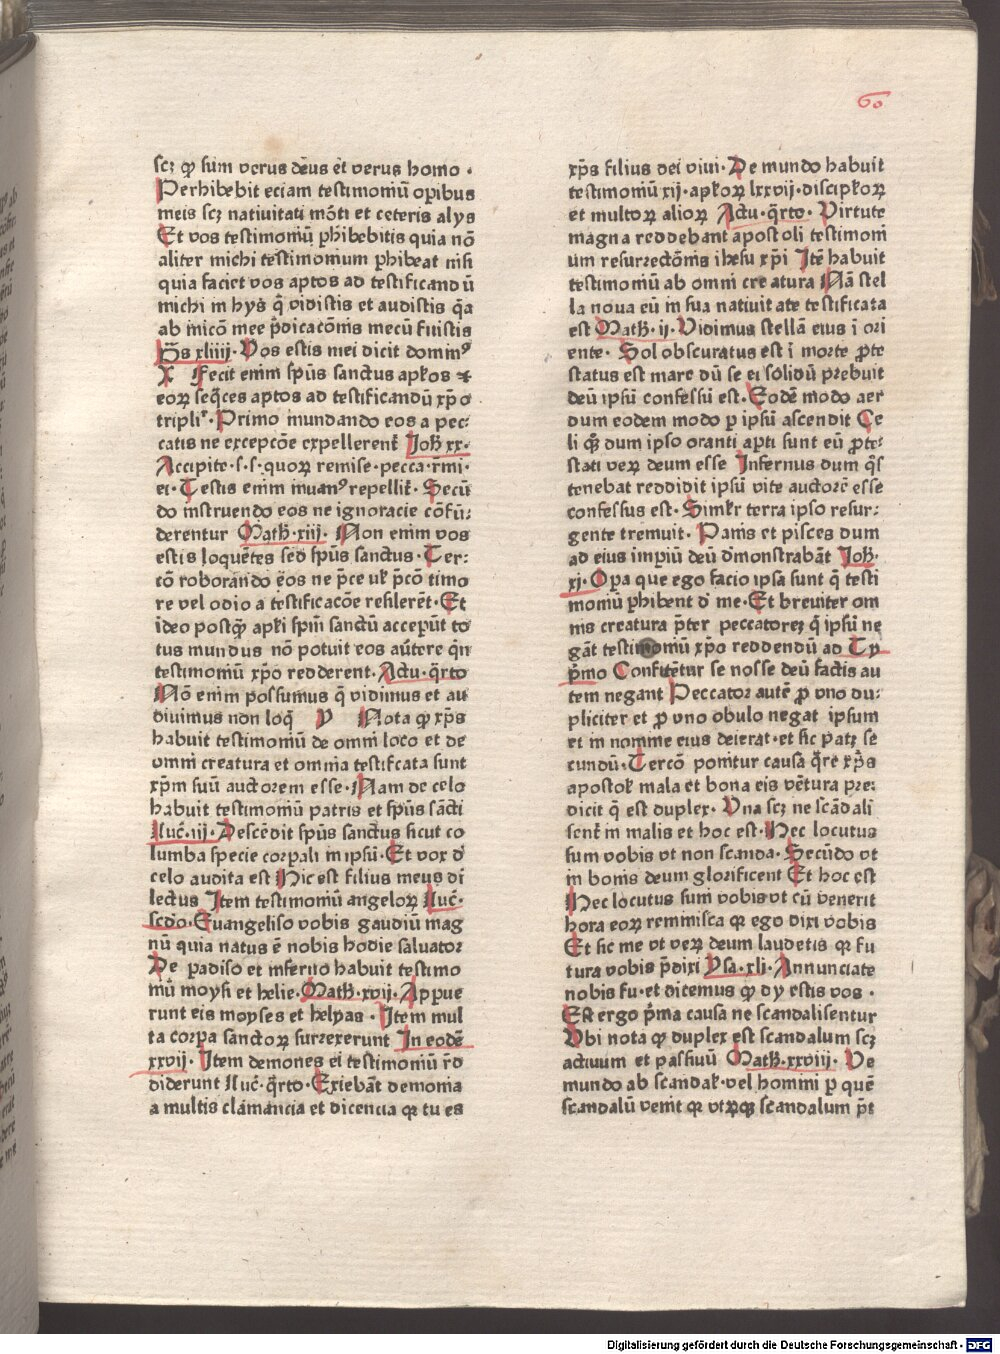 60
scz ꝙ sum verus deus et verus homo ·
Perhibebit eciam testimoniū oꝑibus
meis scz natiuitati mōti et ceteris alys
Et vos testimoniū ꝑhibebitis quia nō
aliter michi testimonium ꝑhibeat nisi
quia faciet vos aptos ad testificandū
michi in hys q̄ vidistis et audistis q̄a
ab inicō mee p̄dicacōnis mecū fuistis
p̄s xliiij · Vos estis mei dicit dominꝰ
X Fecit enim spūs sanctus apl̄os ⁊
eoꝝ seq̄ces aptos ad testificandū xp̄o
tripliʳ · Primo mundando eos a pec⸗
catis ne excepcōe expellerent̄ Joh̄ xx·
Accipite · s · s · quoꝝ remise · pecca · r̄mi ·
ei · Testis enim inuamꝰ repellit̄ · Secū
do instruendo eos ne ignoracie cōfū⸗
derentur Math̄ · xiij · Non enim vos
estis loquētes sed spūs sanctus · Ter⸗
tō roborando eos ne p̄ce ul̄ p̄cō timo
re vel odio a testificacōe resilerēt · Et
ideo postꝙ̄ apl̄i spm̄ sanctū accepūt to
tus mundus nō potuit eos auertere qn̄
testimoniū xp̄o redderent · Actu · q̄rto
Nō enim possumus q̄ vidimus et au
diuimus non loq̄ V Nota ꝙ xp̄s
habuit testimoniū de omni loco et de
omni creatura et omnia testifcata sunt
xp̄m suū auctorem esse · Nam de celo
habuit testimoniū patris et spūs sācti
Luc̄ · iij · Descēdit spūs sanctus sicut co
lumba specie corpali in ipsū · Et vox d̄
celo audita est Hic est filius meus di
lectus Item testimoniū angeloꝝ Luc̄·
scdo · Euangeliso vobis gaudiū mag
nū quia natus ē nobis hodie saluator
De padiso et inferno habuit testimo
niū moysi et helie · Math̄ · xvij · Appue
runt eis moyses et helyas · Item mul
ta corpa sanctoꝝ surrexerunt In eodē
xxvij · Item demones ei testimoniū r̄d
diderunt Luc̄ · q̄rto · Exiebāt demonia
a multis clamancia et dicencia qꝛ tu es
xp̄s filius dei viui · De mundo habuit
testimoniū xij · apl̄oꝝ lxxvij · discipl̄oꝝ
et multoꝝ alioꝝ Actu · q̄rto · Virtute
magna reddebant apostoli testimoni
um resurrectōnis ihesu xp̄i Itē habuit
testimoniū ab omni creatura Nā stel
la noua eū in sua natiuitate testificata
est Math̄ · ij · Vidimus stellā eius ī ori
ente · Sol obscuratus est ī morte ꝓte
status est mare dū se ei solidū prebuit
deū ipsū confessū est · Eodē modo aer
dum eodem modo ꝑ ipsū ascendit Ce
li qꝫ dum ipso oranti apti sunt eū ꝓte⸗
stati veꝝ deum esse Infernus dum q̄s
tenebat reddidit ipsū vite auctorē esse
confessus est · Simil̄r terra ipso resur⸗
gente tremuit · Panis et pisces dum
ad eius impiū deū dm̄onstrabāt Joh̄·
xj · Opa que ego facio ipsa sunt q̄ testi
moniū ꝑhibent d̄ me · Et breuiter om
nis creatura p̄ter peccatorez q̄ ipsū ne
gāt testimoniū xp̄o reddendū ad Ty
p̄mo Confitētur se nosse deū factis au
tem negant Peccator autē ꝓ vno du⸗
pliciter et ꝓ vno obulo negat ipsum
et in nomine eius deierat · et sic patz se
cundū · Tercō ponitur causa q̄re xp̄s
apostol̄ mala et bona eis vētura pre⸗
dicit q̄ est duplex · Vna scz ne scādali
sent̄ in malis et hoc est · Hec locutus
sum vobis vt non scanda · Secūdo vt
in bonis deum glorificent Et hoc est
Hec locutus sum vobis vt cū venerit
hora eoꝝ remmisca qꝛ ego dixi vobis
Et sic me vt veꝝ deum laudetis qꝛ fu
tura vobis p̄dixi Ysa · xli · Annunciate
nobis fu · et dicemus ꝙ dy estis vos ·
Est ergo p̄ma causa ne scandalisentur
Vbi nota ꝙ duplex est scandalum scz
actiuum et passiuū Math̄ · xxviij · Ve
mundo ab scandal̄ · vel homini ꝑ quē
scandalū venit qꝛ vtꝝqꝫ scandalum p̄t
Digitalisierung gefördert durch die Deutsche Forschungsgemeinschaft · DFG